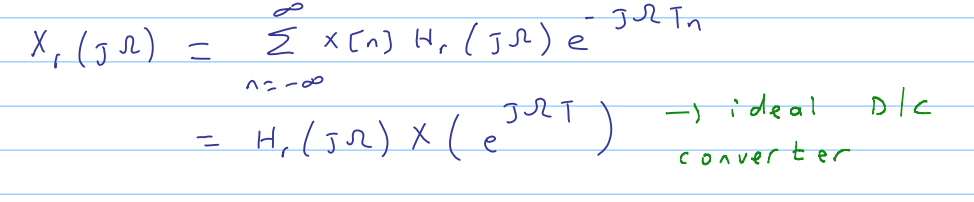 X_r(jΩ) = ∑_{n=-∞}^{∞} x[n] H_r(jΩ) e^{-jΩTn}
= H_r(jΩ) X(e^{jΩT}) → ideal D/C
converter